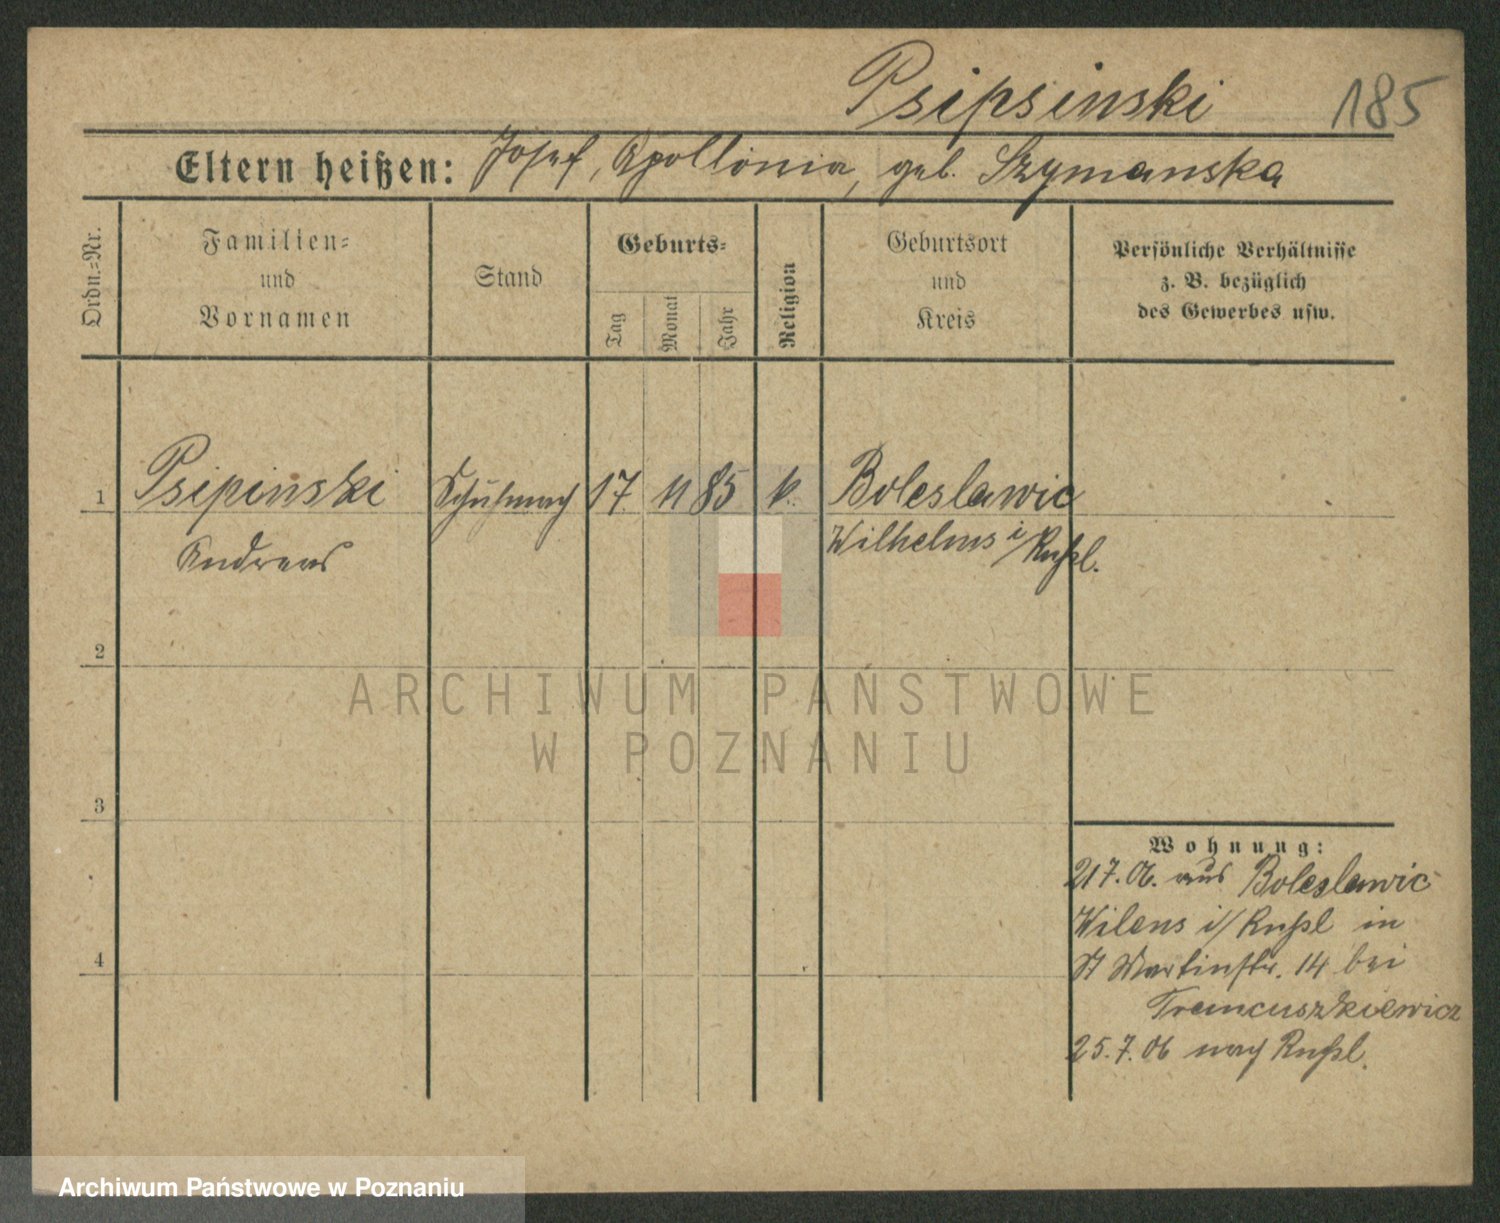 Psipsinski 185
Eltern heißen: Josef, Apollonia, geb. Szymanska
Ordn.-Nr.
Familien-
und
Vornamen
Stand
Geburts-
Tag
Monat
Jahr
Religion
Geburtsort
und
Kreis
Persönliche Verhältnisse
z. B. bezüglich
des Gewerbes usw.
1 Psipinski Schuhmach 17. 11 85 k. Boleslawic
Andreas Wilhelms i/ Rußl.
2
ARCHIWUM PAŃSTWOWE
W POZNANIU
3
Wohnung:
21 7. 06. aus Boleslawic
Wilens i/ Rußl in
St Martinstr. 14 bei
4
Francuszkiewicz
25. 7. 06 nach Rußl.
Archiwum Państwowe w Poznaniu